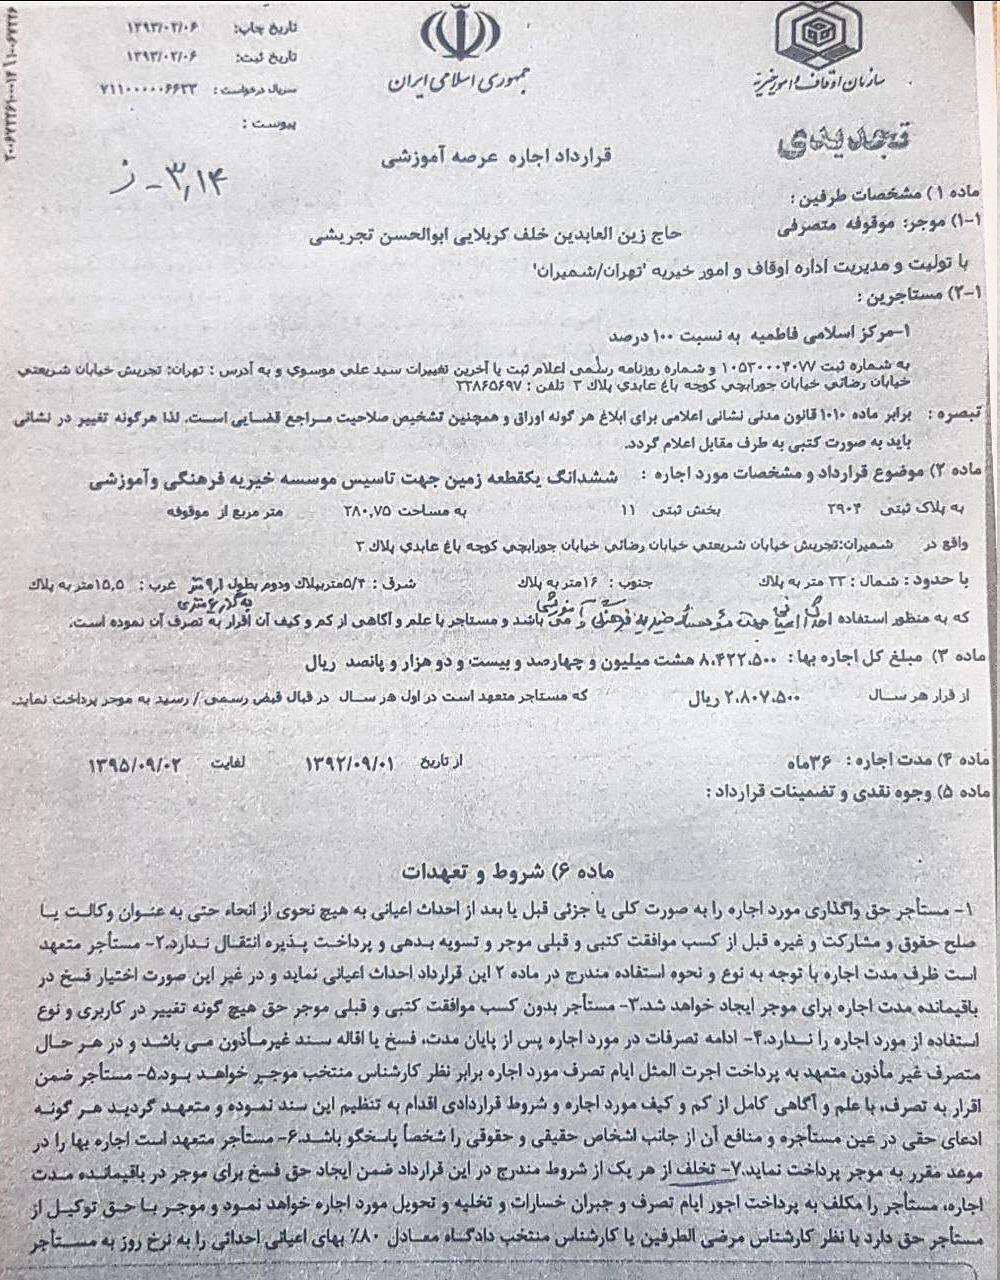 سازمان اوقاف و امور خیریه
جمهوری اسلامی ایران
تاریخ چاپ: ۱۳۹۳/۰۲/۰۶
تاریخ ثبت: ۱۳۹۳/۰۲/۰۶
سریال درخواست: ۷۱۱۰۰۰۰۰۶۶۳۳
پیوست:
تجدیدی
قرارداد اجاره عرصه آموزشی
۳,۱۴ - ز
ماده ۱) مشخصات طرفین:
۱-۱) موجر: موقوفه متصرفی حاج زین العابدین خلف کربلایی ابوالحسن تجریشی
با تولیت و مدیریت اداره اوقاف و امور خیریه 'تهران/شمیران'
۱-۲) مستاجرین:
۱-مرکز اسلامی فاطمیه به نسبت ۱۰۰ درصد
به شماره ثبت ۱۰۵۳۰۰۰۴۰۷۷ و شماره روزنامه رسمی اعلام ثبت یا آخرین تغییرات سید علی موسوی و به آدرس: تهران: تجریش خیابان شریعتی
خیابان رضائی خیابان جورابچی کوچه باغ عابدی پلاک ۳ تلفن: ۲۲۸۶۵۶۹۷
تبصره: برابر ماده ۱۰۱۰ قانون مدنی نشانی اعلامی برای ابلاغ هر گونه اوراق و همچنین تشخیص صلاحیت مراجع قضایی است. لذا هرگونه تغییر در نشانی
باید به صورت کتبی به طرف مقابل اعلام گردد.
ماده ۲) موضوع قرارداد و مشخصات مورد اجاره: ششدانگ یکقطعه زمین جهت تاسیس موسسه خیریه فرهنگی و آموزشی
به پلاک ثبتی ۲۹۰۴ بخش ثبتی ۱۱ به مساحت ۲۸۰,۷۵ متر مربع از موقوفه
واقع در شمیران:تجریش خیابان شریعتی خیابان رضائی خیابان جورابچی کوچه باغ عابدی پلاک ۳
با حدود: شمال: ۲۳ متر به پلاک جنوب: ۱۶متر به پلاک شرق: ۵/۴متربپلاک ودوم بطول ۹٫۱متر غرب: ۱۵,۵متر به پلاک
به گذر ۶ متری
که به منظور استفاده احداث اعیانی جهت مؤسسه خیریه فرهنگی و آموزشی می باشد و مستاجر با علم و آگاهی از کم و کیف آن اقرار به تصرف آن نموده است.
ماده ۳) مبلغ کل اجاره بها: ۸،۴۲۲،۵۰۰ هشت میلیون و چهارصد و بیست و دو هزار و پانصد ریال
از قرار هر سال ۲،۸۰۷،۵۰۰ ریال که مستاجر متعهد است در اول هر سال در قبال قبض رسمی / رسید به موجر پرداخت نماید.
ماده ۴) مدت اجاره: ۳۶ماه از تاریخ ۱۳۹۲/۰۹/۰۱ لغایت ۱۳۹۵/۰۹/۰۲
ماده ۵) وجوه نقدی و تضمینات قرارداد:
ماده ۶) شروط و تعهدات
۱- مستأجر حق واگذاری مورد اجاره را به صورت کلی یا جزئی قبل یا بعد از احداث اعیانی به هیچ نحوی از انحاء حتی به عنوان وکالت یا
صلح حقوق و مشارکت و غیره قبل از کسب موافقت کتبی و قبلی موجر و تسویه بدهی و پرداخت پذیره انتقال ندارد.۲- مستأجر متعهد
است ظرف مدت اجاره با توجه به نوع و نحوه استفاده مندرج در ماده ۲ این قرارداد احداث اعیانی نماید و در غیر این صورت اختیار فسخ در
باقیمانده مدت اجاره برای موجر ایجاد خواهد شد.۳- مستأجر بدون کسب موافقت کتبی و قبلی موجر حق هیچ گونه تغییر در کاربری و نوع
استفاده از مورد اجاره را ندارد.۴- ادامه تصرفات در مورد اجاره پس از پایان مدت، فسخ یا اقاله سند غیرمأذون می باشد و در هر حال
متصرف غیر مأذون متعهد به پرداخت اجرت المثل ایام تصرف مورد اجاره برابر نظر کارشناس منتخب موجر خواهد بود.۵- مستأجر ضمن
اقرار به تصرف، با علم و آگاهی کامل از کم و کیف مورد اجاره و شروط قراردادی اقدام به تنظیم این سند نموده و متعهد گردید هر گونه
ادعای حقی در عین مستأجره و منافع آن از جانب اشخاص حقیقی و حقوقی را شخصاً پاسخگو باشد.۶- مستأجر متعهد است اجاره بها را در
موعد مقرر به موجر پرداخت نماید.۷- تخلف از هر یک از شروط مندرج در این قرارداد ضمن ایجاد حق فسخ برای موجر در باقیمانده مدت
اجاره، مستأجر را مکلف به پرداخت اجور ایام تصرف و جبران خسارات و تخلیه و تحویل مورد اجاره خواهد نمود و موجر با حق توکیل از
مستأجر حق دارد با نظر کارشناس مرضی الطرفین یا کارشناس منتخب دادگاه معادل ۸۰٪ بهای اعیانی احداثی را به نرخ روز به مستأجر